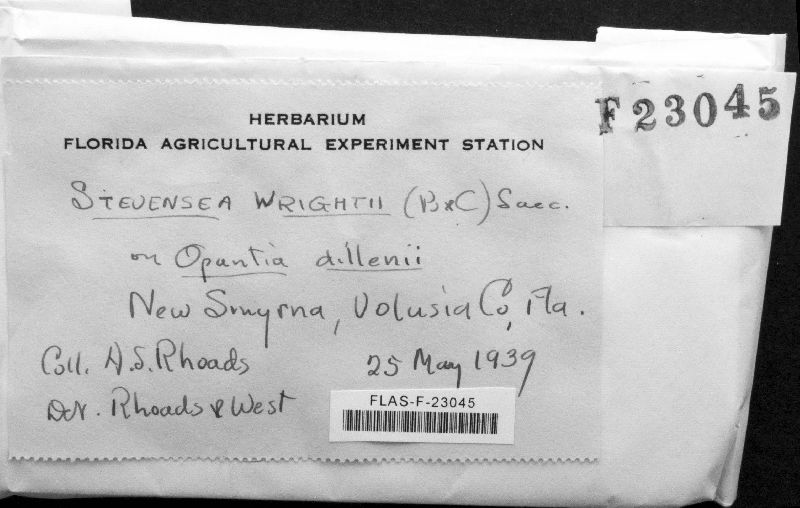 F23045
HERBARIUM
FLORIDA AGRICULTURAL EXPERIMENT STATION
STEVENSEA WRIGHTII (B&C) Sacc.
on Opuntia dillenii
New Smyrna, Volusia Co, Fla.
Coll. A.S. Rhoads 25 May 1939
Det. Rhoads & West
FLAS-F-23045